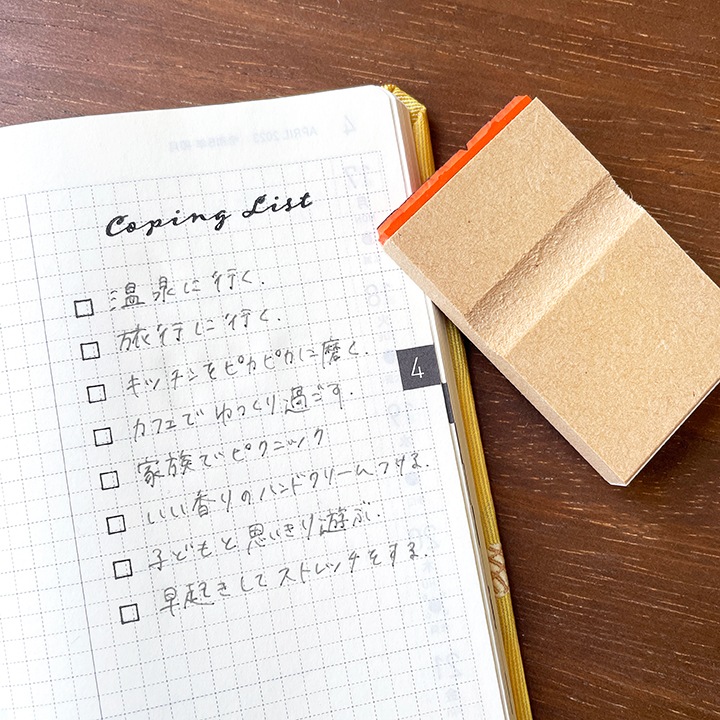 Coping List
温泉に行く.
旅行に行く.
キッチンをピカピカに磨く.
カフェでゆっくり過ごす.
家族でピクニック
いい香りのハンドクリームつける.
子どもと思いきり遊ぶ.
早起きしてストレッチをする.
4